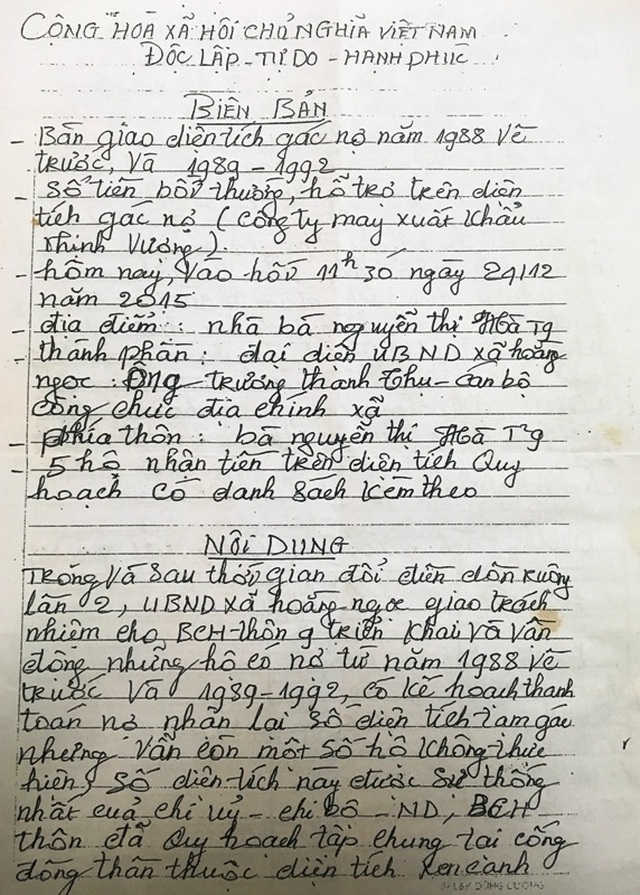 CỘNG HOÀ XÃ HỘI CHỦ NGHĨA VIỆT NAM
ĐỘC LẬP - TỰ DO - HẠNH PHÚC
BIÊN BẢN
- Bàn giao diện tích gác nợ năm 1988 về
trước, và 1989 - 1992
- Số tiền bồi thường, hỗ trợ trên diện
tích gác nợ (công ty may xuất khẩu
Thịnh Vượng).
- hôm nay, vào hồi 11h30 ngày 24/12
năm 2015
- địa điểm: nhà bà nguyễn thị Hà Tg
- thành phần: đại diện UBND xã hoằng
ngọc: Ông trương thành thụ - cán bộ
công chức địa chính xã
- phía thôn: bà nguyễn thị Hà Tg
- 5 hộ nhận tiền trên diện tích Quy
hoạch có danh sách kèm theo
NỘI DUNG
Trong và sau thời gian đổi điền dồn ruộng
lần 2, UBND xã hoằng ngọc giao trách
nhiệm cho BCH thôn 9 triển khai và vận
động những hộ có nợ từ năm 1988 về
trước và 1989-1992, có kế hoạch thanh
toán nợ nhận lại số diện tích tạm gác
nhưng vẫn còn một số hộ không thực
hiện, số diện tích này được sự thống
nhất của chi uỷ - chi bộ - ND, BCH
thôn đã Quy hoạch tập chung tại cống
đồng thần thuộc diện tích xen canh